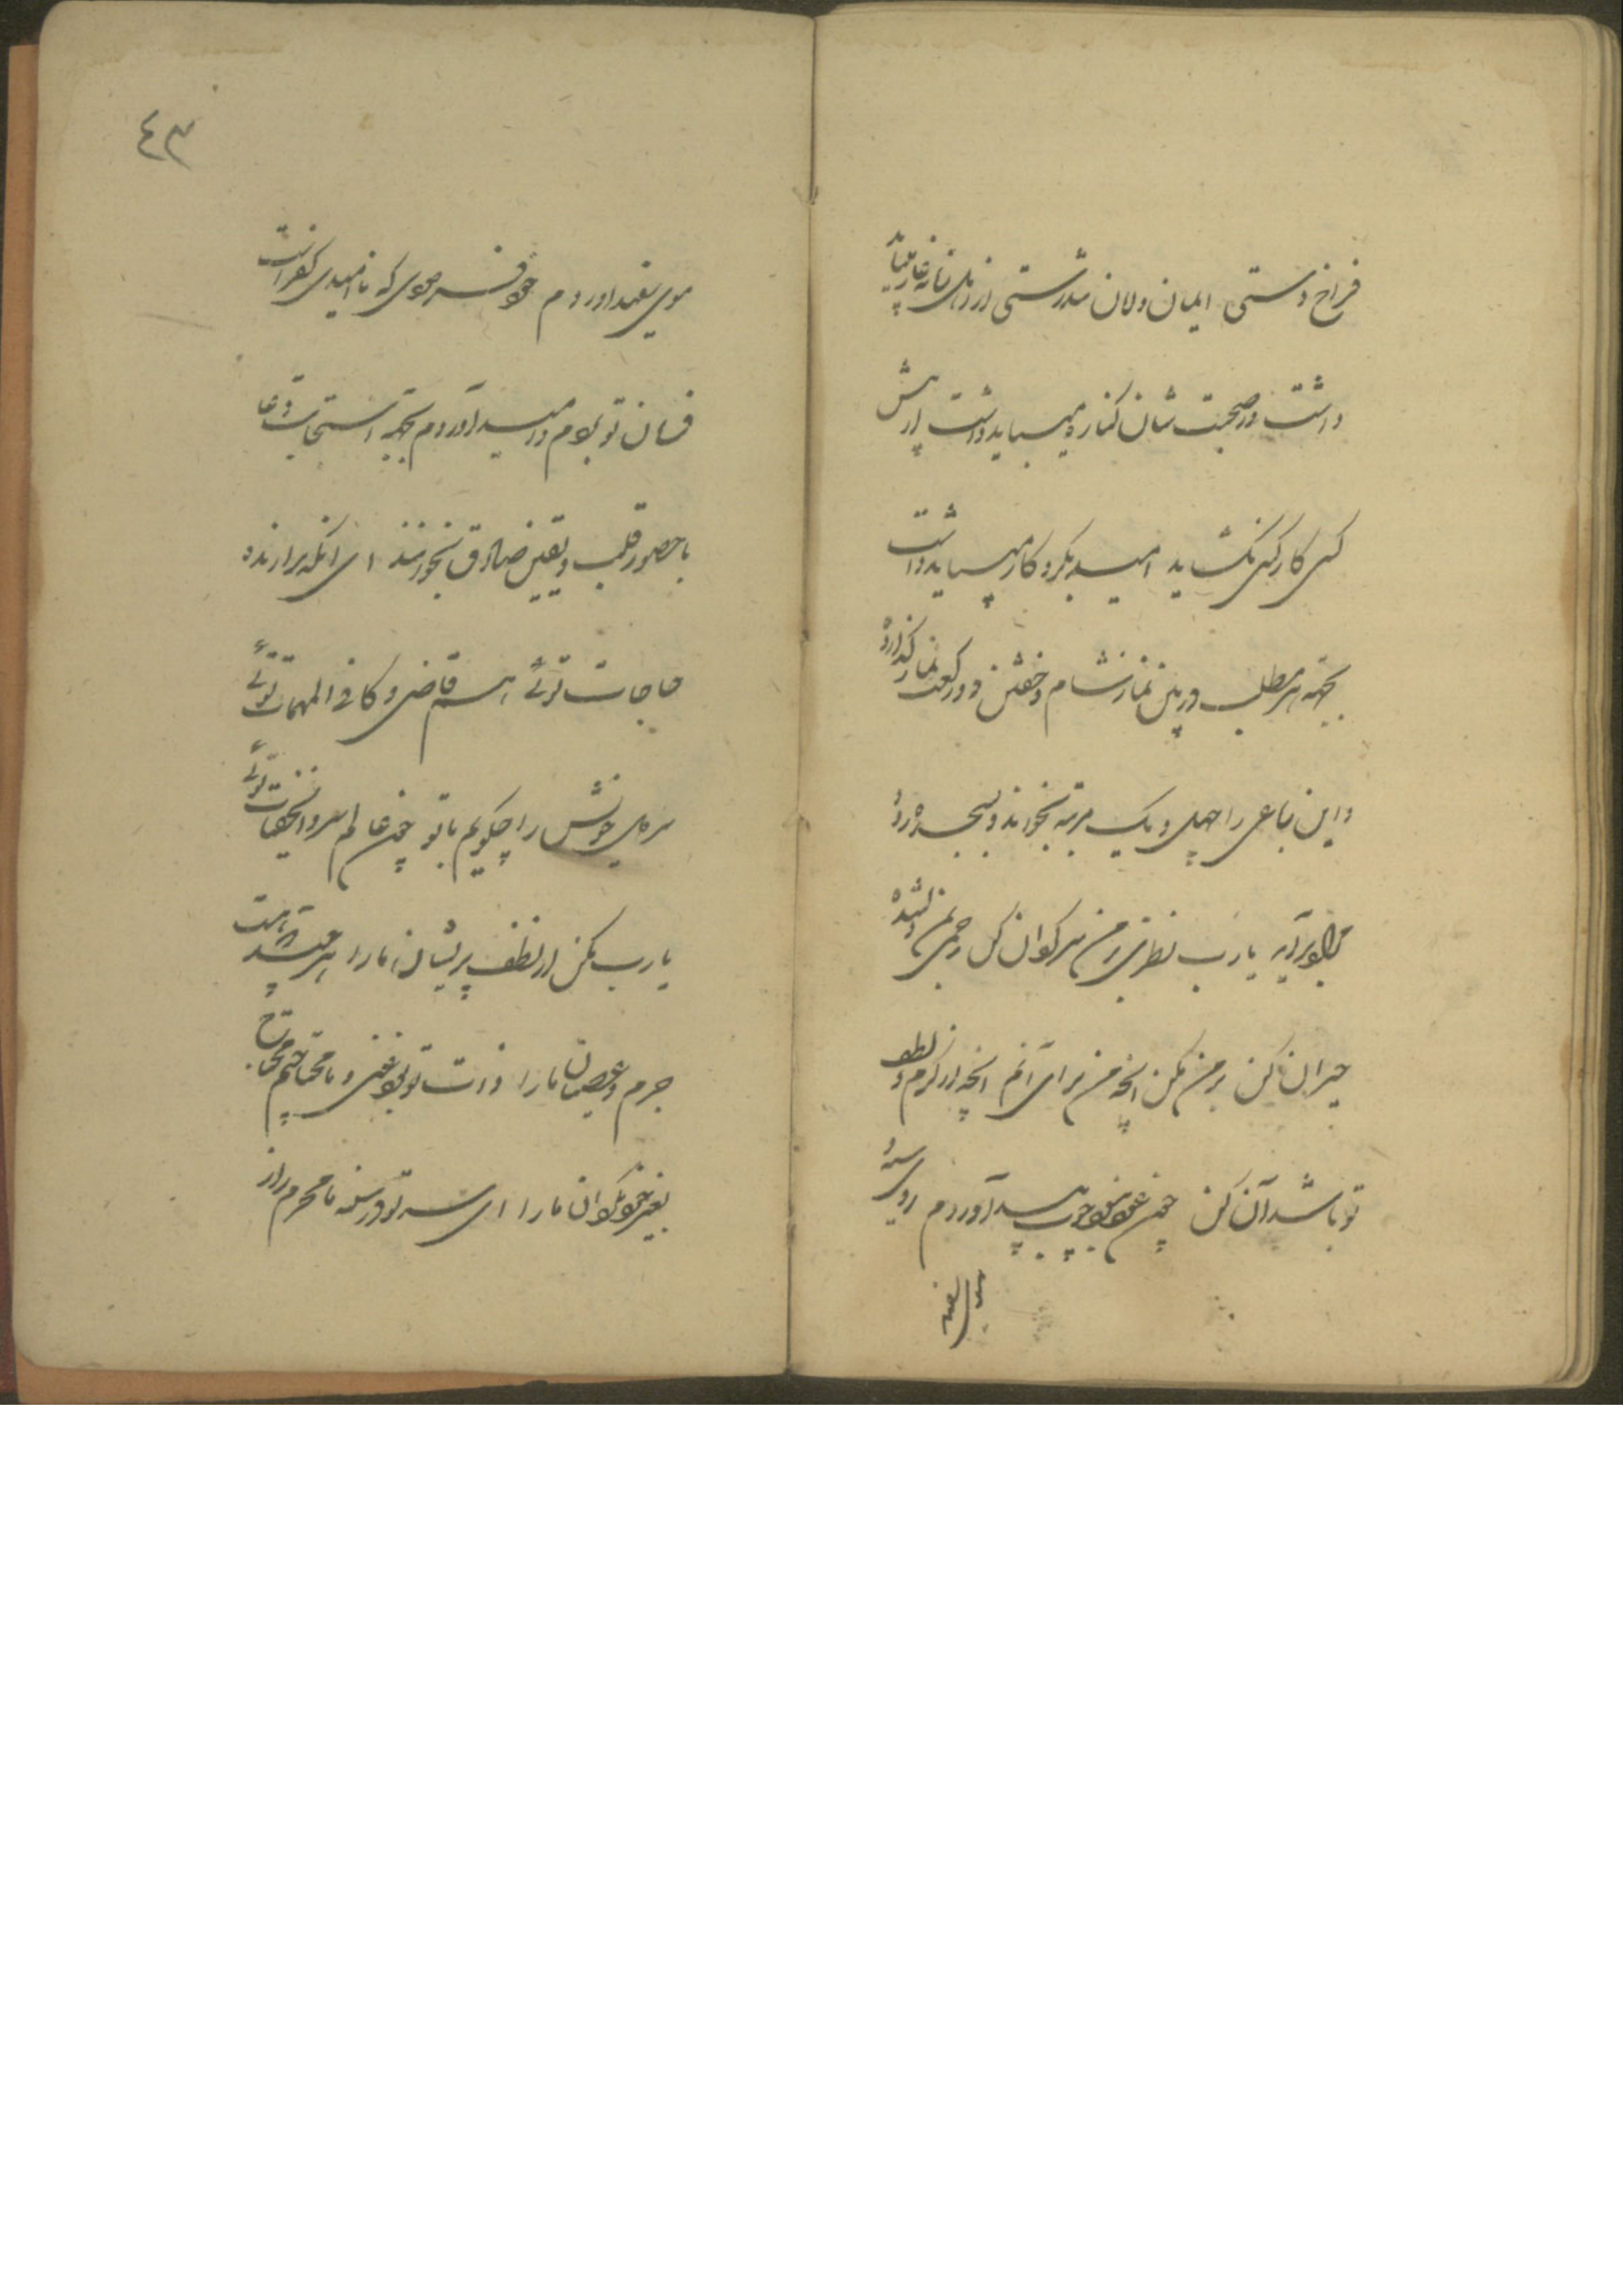 فراخ دستی ایمان و لان تندرستی از اهل زمانه عار میباید
داشت در صحبت شان کناره میباید داشت از پیش
کسی کار کسی نگشاید امید بکردکار میباید داشت
بجهة هر مطلب در بین نماز شام و خفتن دو رکعت نماز گذارده
و این رباعی را چهل و یک مرتبه بخواند و بسجده رود
برآید یارب نظری بر من سرگردان کن رحمی بمن دلشده
حیران کن بر من مکن آنچه من سزای آنم آنچه از کرم و لطف
تو باشد آن کن چون عود نبود چوب بید آوردم روی سیه
موی سفید آوردم خود فرمودی که ناامیدی کفر است
فرمان تو بردم و امید آوردم بجهة استجابت دعا
با حضور قلب و یقین صادق بخوانند ای آنکه برآرنده
حاجات توئی هم قاضی و کافی المهمات توئی
سر دل خویش را چگویم با تو چون عالم سر و الخفیات توئی
یارب مکن از لطف پریشان ما را هر چند که هست
جرم و عصیان ما را ذات تو غنی و ما محتاجیم محتاج
بغیر خود مگردان ما را ای سر تو در سینه ما محرم راز